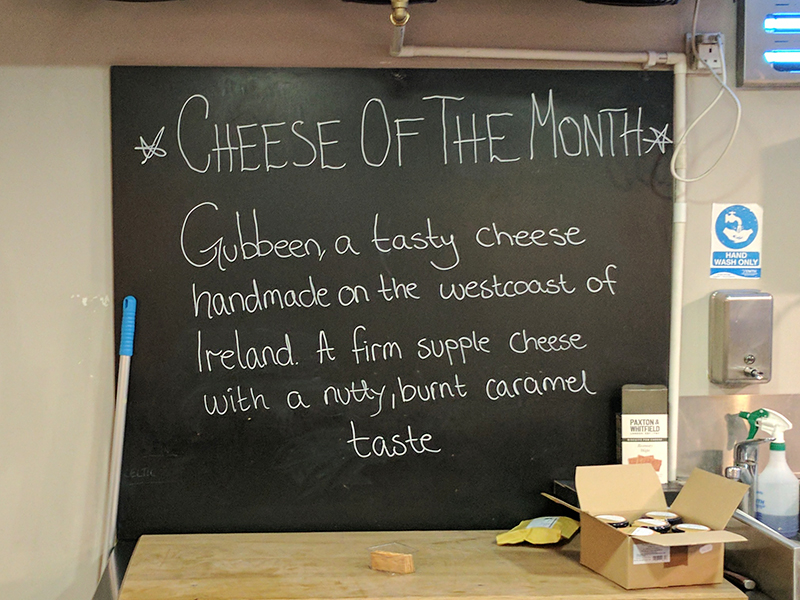 CHEESE OF THE MONTH
Gubbeen, a tasty cheese
handmade on the westcoast of
Ireland. A firm supple cheese
with a nutty, burnt caramel
taste
HAND
WASH ONLY
PAXTON &
WHITFIELD